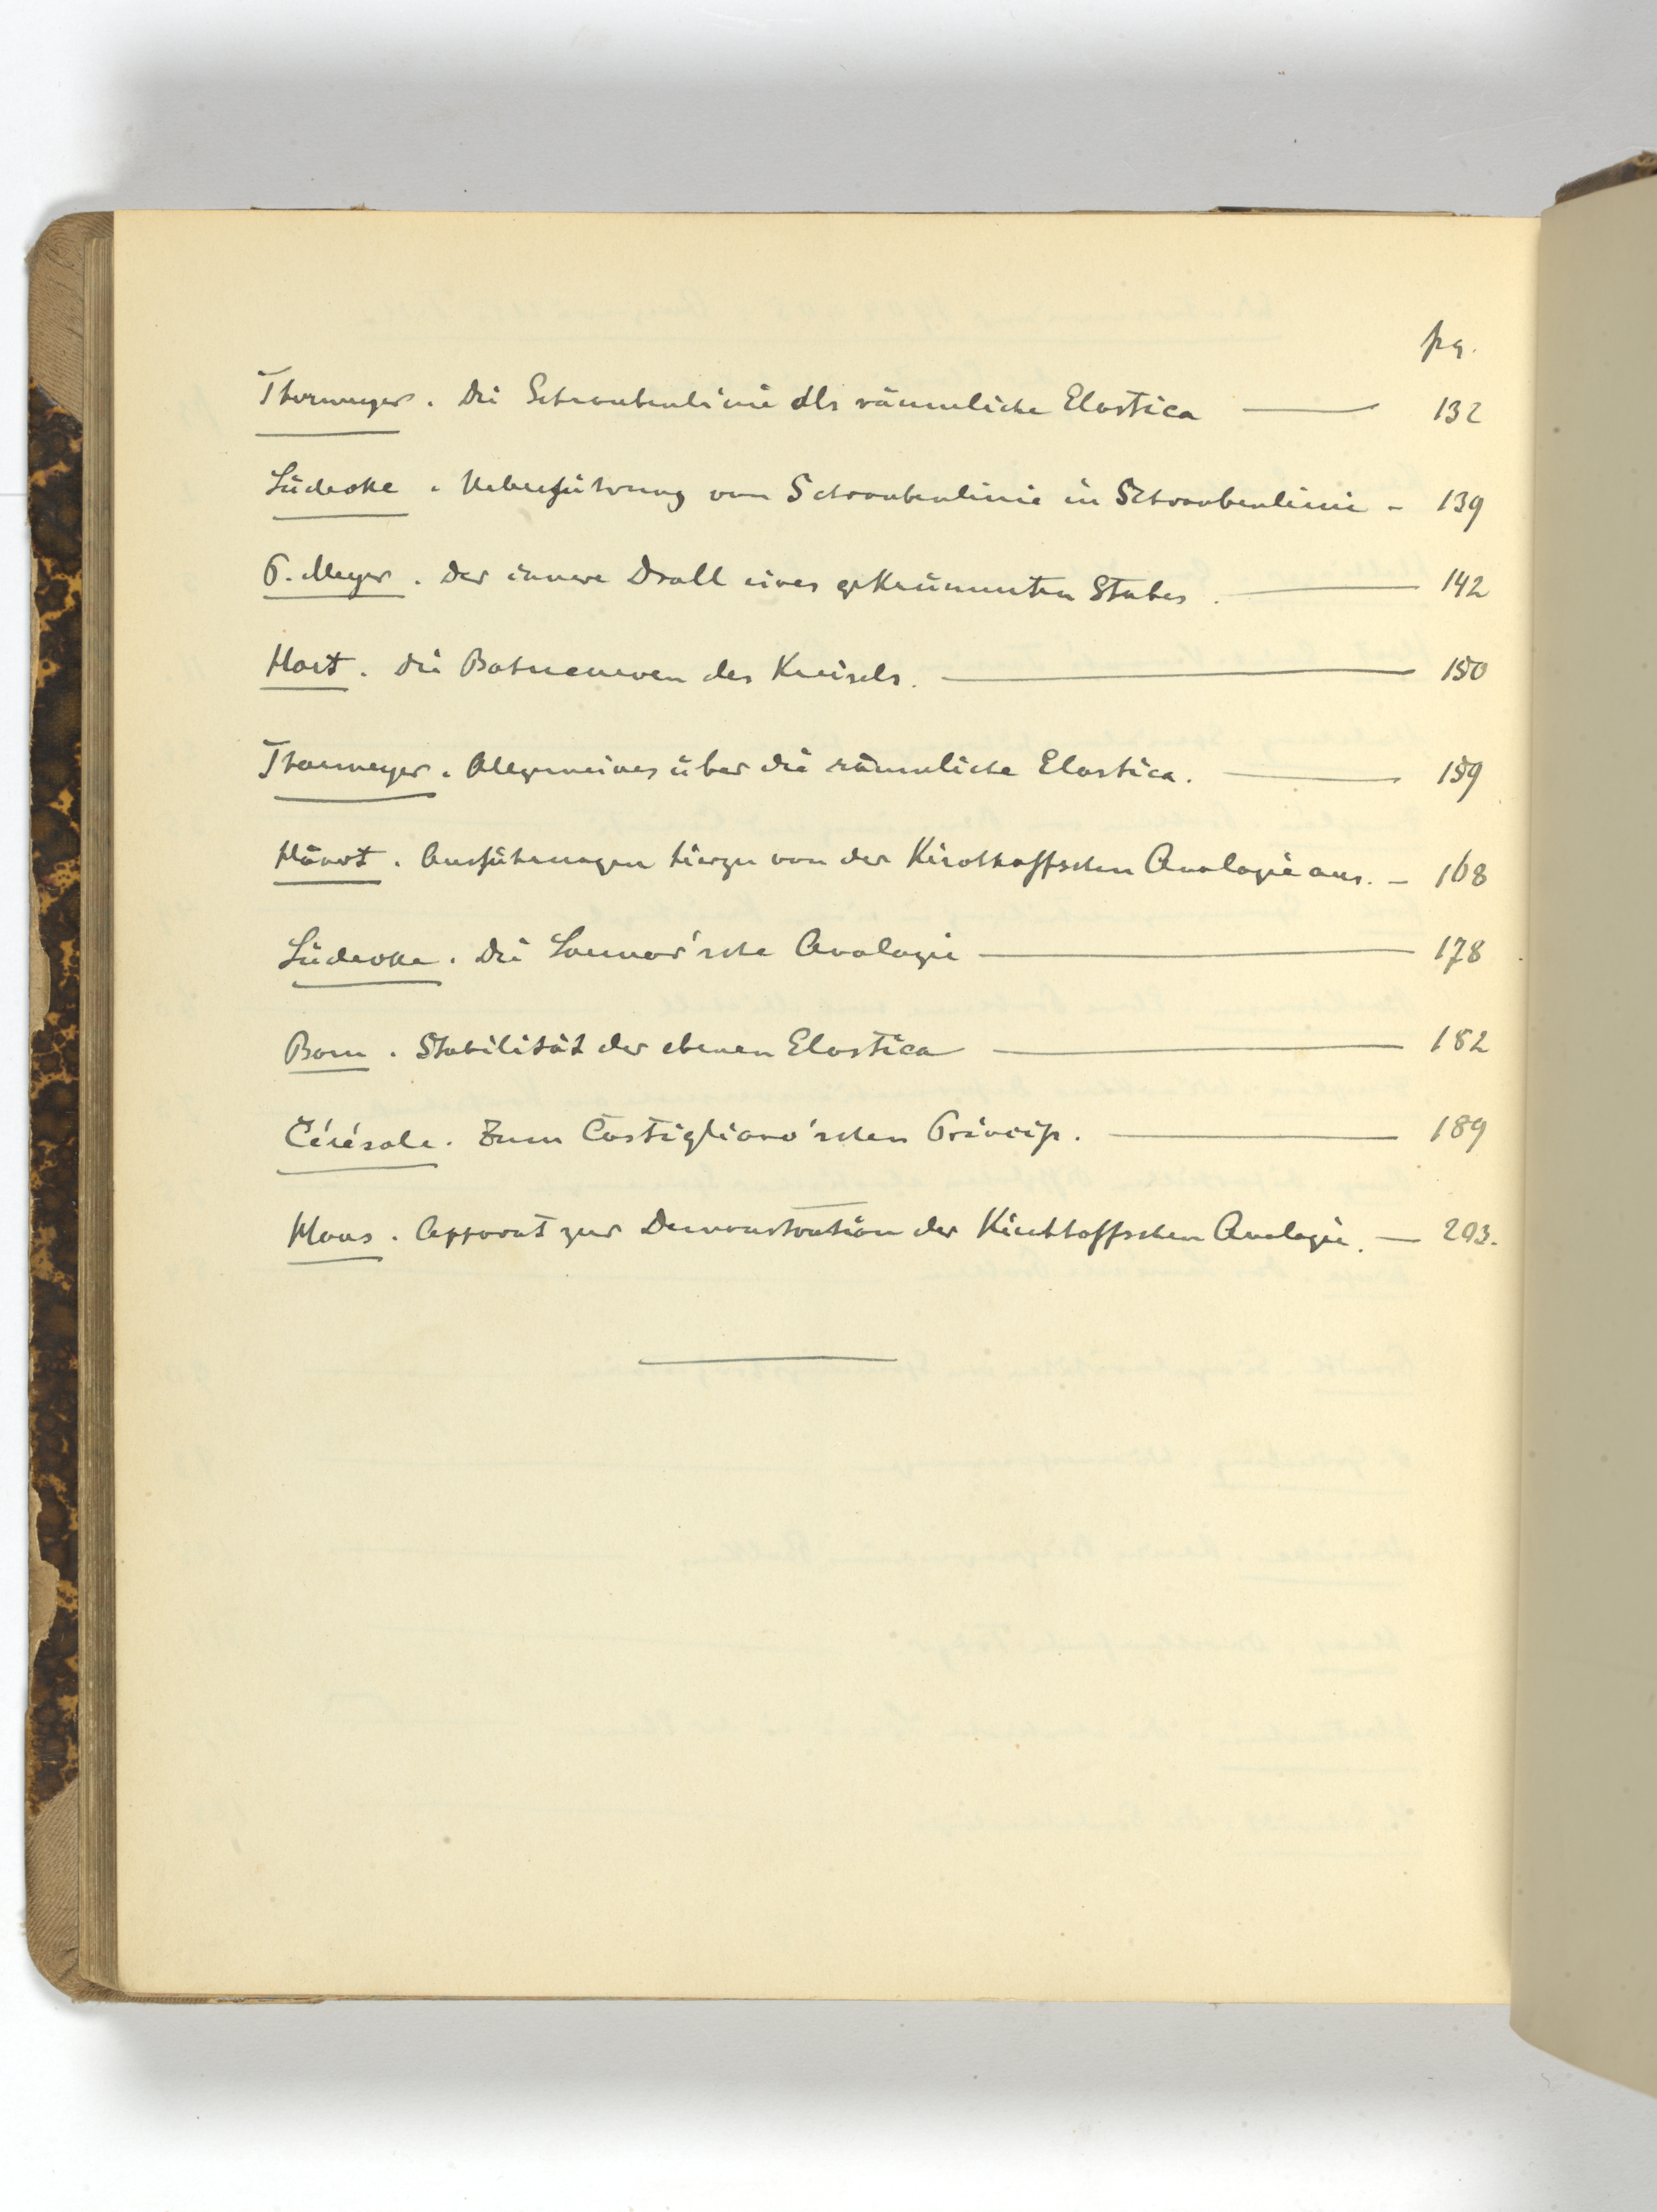 pg.
Thormeyer. Die Schraubenlinie als räumliche Elastica — 132
Lüdecke. Ueberführung von Schraubenlinie in Schraubenlinie - 139
P. Meyer. Der innere Drall eines gekrümmten Stabes. — 142
Hort. Die Bahncurven des Kreisels. — 150
Thormeyer. Allgemeines über die räumliche Elastica. — 159
Ausführungen hierzu von der Kirchhoffschen Analogie aus. - 168
Lüdecke. Die Larmor'sche Analogie — 178
Born. Stabilität der ebenen Elastica — 182
Cérésole. Zum Castigliano'schen Princip. — 189
Apparat zur Demonstration der Kirchhoffschen Analogie. — 203.